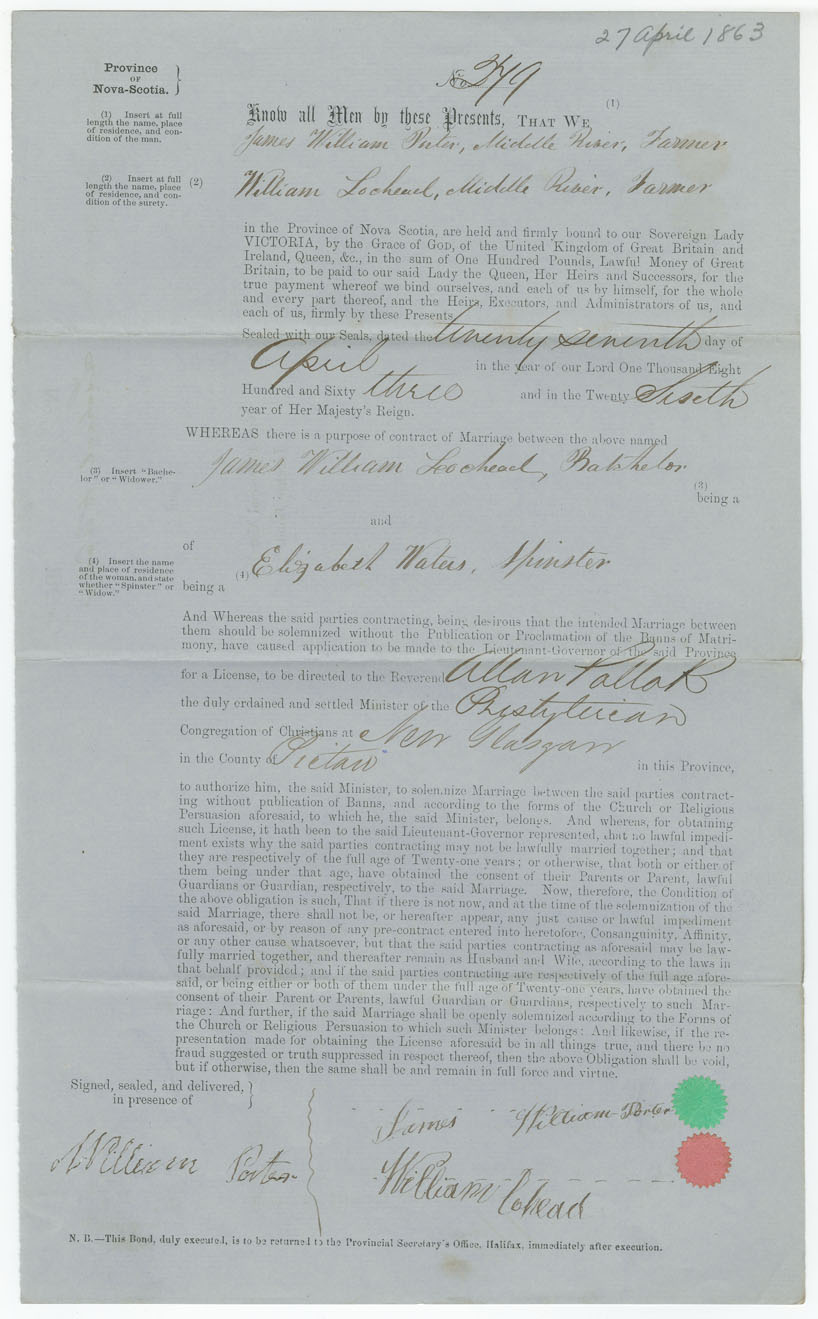 27 April 1863
Province
OF
Nova-Scotia.
No. 279
(1) Insert at full
length the name, place
of residence, and con-
dition of the man.
Know all Men by these Presents, THAT WE (1)
James William Porter, Middle River, Farmer
(2) Insert at full
length the name, place
of residence, and con-
dition of the surety.
(2) William Lochead, Middle River, Farmer
in the Province of Nova Scotia, are held and firmly bound to our Sovereign Lady
VICTORIA, by the Grace of GOD, of the United Kingdom of Great Britain and
Ireland, Queen, &c., in the sum of One Hundred Pounds, Lawful Money of Great
Britain, to be paid to our said Lady the Queen, Her Heirs and Successors, for the
true payment whereof we bind ourselves, and each of us by himself, for the whole
and every part thereof, and the Heirs, Executors, and Administrators of us, and
each of us, firmly by these Presents.
Sealed with our Seals, dated the twenty seventh day of
April in the year of our Lord One Thousand Eight
Hundred and Sixty three and in the Twenty Sixth
year of Her Majesty's Reign.
WHEREAS there is a purpose of contract of Marriage between the above named
James William Lochead, Batchelor
(3) Insert "Bache-
lor" or "Widower."
(3)
being a
and
of
(4) Insert the name
and place of residence
of the woman, and state
whether "Spinster" or
"Widow."
(4) Elizabeth Waters, Spinster
being a
And Whereas the said parties contracting, being desirous that the intended Marriage between
them should be solemnized without the Publication or Proclamation of the Banns of Matri-
mony, have caused application to be made to the Lieutenant-Governor of the said Province
for a License, to be directed to the Reverend Allan Pollok
the duly ordained and settled Minister of the Presbyterian
Congregation of Christians at New Glasgow
in the County of Pictou in this Province,
to authorize him, the said Minister, to solemnize Marriage between the said parties contract-
ing without publication of Banns, and according to the forms of the Church or Religious
Persuasion aforesaid, to which he, the said Minister, belongs. And whereas, for obtaining
such License, it hath been to the said Lieutenant-Governor represented, that no lawful impedi-
ment exists why the said parties contracting may not be lawfully married together; and that
they are respectively of the full age of Twenty-one years; or otherwise, that both or either of
them being under that age, have obtained the consent of their Parents or Parent, lawful
Guardians or Guardian, respectively, to the said Marriage. Now, therefore, the Condition of
the above obligation is such, That if there is not now, and at the time of the solemnization of the
said Marriage, there shall not be, or hereafter appear, any just cause or lawful impediment
as aforesaid, or by reason of any pre-contract entered into heretofore, Consanguinity, Affinity,
or any other cause whatsoever, but that the said parties contracting as aforesaid may be law-
fully married together, and thereafter remain as Husband and Wife, according to the laws in
that behalf provided; and if the said parties contracting are respectively of the full age afore-
said, or being either or both of them under the full age of Twenty-one years, have obtained the
consent of their Parent or Parents, lawful Guardian or Guardians, respectively to such Mar-
riage: And further, if the said Marriage shall be openly solemnized according to the Forms of
the Church or Religious Persuasion to which such Minister belongs: And likewise, if the re-
presentation made for obtaining the License aforesaid be in all things true, and there be no
fraud suggested or truth suppressed in respect thereof, then the above Obligation shall be void,
but if otherwise, then the same shall be and remain in full force and virtue.
Signed, sealed, and delivered,
in presence of
James William Porter
William Porter
William Lohead
N. B.—This Bond, duly executed, is to be returned to the Provincial Secretary's Office, Halifax, immediately after execution.